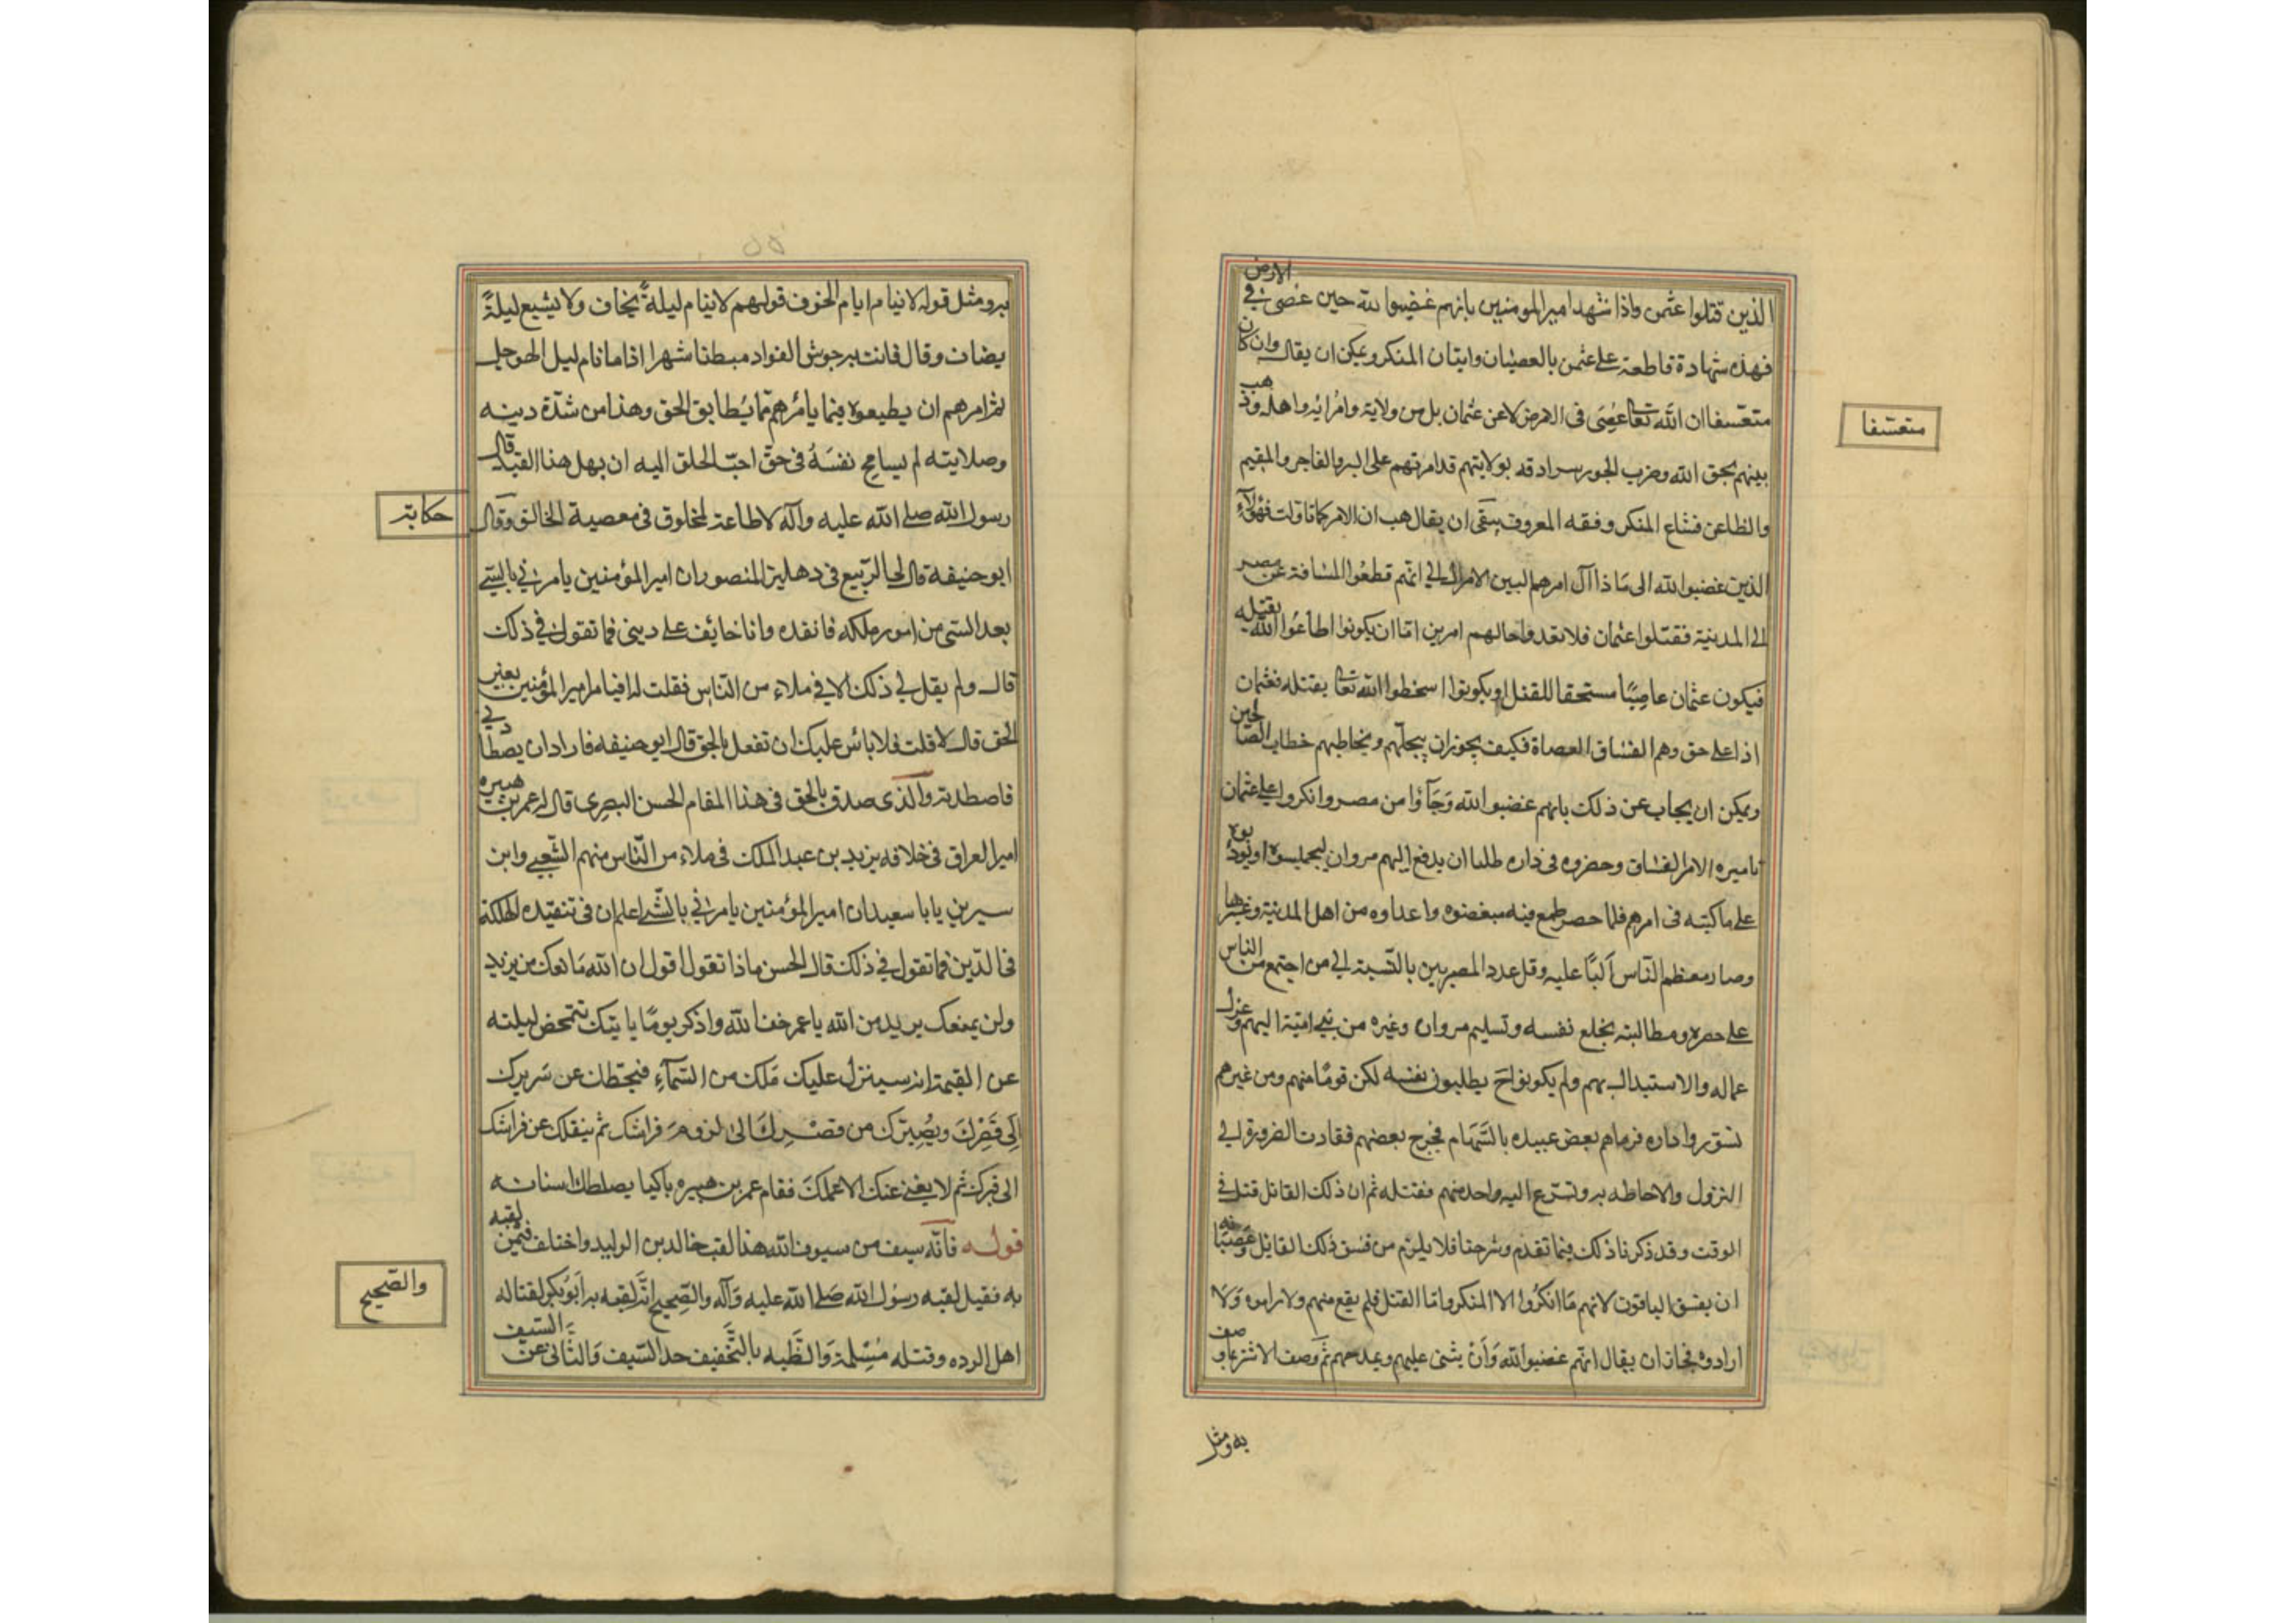 الذين قتلوا عثمن واذا شهد امير المومنين بانهم غضبوا لله حين عصى في الارض
فهذه شهادة قاطعة على عثمن بالعصيان واتيان المنكر ويمكن ان يقال وان كان
متعسفا ان الله تعا عصى في الارض لا عن عثمان بل من ولاية وامرائه واهله وذهب
بينهم بحق الله وضرب الجور سرادقه بولايتهم قد امرتهم على البر والفاجر والمقيم
والظاعن فشاع المنكر وفقد المعروف يبقى ان يقال هب ان الامر كما تاولت فهؤلاء
الذين غضبوا لله الى ما ذا آل امرهم اليس الامر آل الى انهم قطعوا المسافة عن مصر
الى المدينة فقتلوا عثمان فلا تعدوا حالهم امرين اما ان يكونوا اطاعوا الله بقتله
فيكون عثمان عاصيا مستحقا للقتل او يكونوا اسخطوا الله تعا بقتله فعثمان
اذا على حق وهم الفساق العصاة فكيف يجوز ان يبجلهم ويخاطبهم خطاب الصالحين
ويمكن ان يجاب عن ذلك بانهم غضبوا لله وجاؤا من مصر وانكروا على عثمان
تاميره الامر الفساق وحضروه في داره طلبا ان يدفع اليهم مروان ليحبسوه او يؤدبوه
على ما كتبه في امرهم فلما حصر طمع فيه مبغضوه واعداوه من اهل المدينة وغيرها
وصار معظم الناس البا عليه وقل عدد المصريين بالنسبة الى من اجتمع من الناس
على حصره ومطالبته بخلع نفسه وتسليم مروان وغيره من بني امية اليهم وعزل
عماله والاستبدال بهم ولم يكونوا ح يطلبون نفسه لكن قوما منهم ومن غيرهم
تسوروا داره فرماهم بعض عبيده بالسهام فجرح بعضهم فقادت الضرورة الى
النزول والاحاطه به وتسرع اليه واحد منهم فقتله ثم ان ذلك القاتل قتل في
الوقت وقد ذكرنا ذلك فيما تقدم وشرحناه فلا يلزم من فسق ذلك القاتل وعصيانه
ان يفسق الباقون لانهم ما انكروا الا المنكر واما القتل فلم يقع منهم ولا راموه ولا
ارادوه فجاز ان يقال انهم غضبوا لله وان يثنى عليهم ويمدحهم ثم وصف الاشتر بما وصف
به ومثل
متعسفا
به ومثل قوله لا ينام ايام الخوف قولهم لا ينام ليلة يخاف ولا يشبع ليلة
يضاف وقال فاتت به حوش الفواد مبطنا شهرا اذا ما نام ليل الهوجل
ثم امرهم ان يطيعوه فيما يامرهم مما يطابق الحق وهذا من شدة دينه
وصلابته لم يسامح نفسه في حق احب الخلق اليه ان يهمل هذا القيد قال
رسول الله صلى الله عليه وآله لا طاعة لمخلوق في معصية الخالق وقال
ابو حنيفة قال لي الربيع في دهليز المنصور ان امير المؤمنين يامرني بالشي
بعد الشي من امور ملكه فانفذه وانا خايف على ديني فما تقول في ذلك
قال ولم يقل لي ذلك الا في ملاء من الناس فقلت له افيامر امير المؤمنين بغير
الحق قال لا قلت فلا باس عليك ان تفعل بالحق قال ابو حنيفه فاراد ان يصطادني
فاصطدته والذي صدق بالحق في هذا المقام الحسن البصري قال له عمر بن هبيره
امير العراق في خلافه يزيد بن عبد الملك في ملاء من الناس منهم الشعبي وابن
سيرين يابا سعيد ان امير المؤمنين يامرني بالشي اعلم ان في تنفيذه الهلكة
في الدين فما تقول في ذلك قال الحسن ماذا تقول اقول ان الله مانعك من يزيد
ولن يمنعك يزيد من الله يا عمر خف الله واذكر يوما ياتيك تتمخض ليلته
عن القيمة انه سينزل عليك ملك من السماء فيحطك عن سريرك
الى قصرك ويصيرك من قصرك الى لزوم فراشك ثم ينقلك عن فراشك
الى قبرك ثم لا يغني عنك الا عملك فقام عمر بن هبيره باكيا يصطك اسنانه
قوله فانه سيف من سيوف الله هذا لقب خالد بن الوليد واختلف فيمن لقبه
به فقيل لقبه رسول الله صلى الله عليه وآله والصحيح انه لقبه به ابو بكر لقتاله
اهل الرده وقتله مسيلمة والظبه بالتخفيف حد السيف والنابي من السيف
حكاية
والصحيح